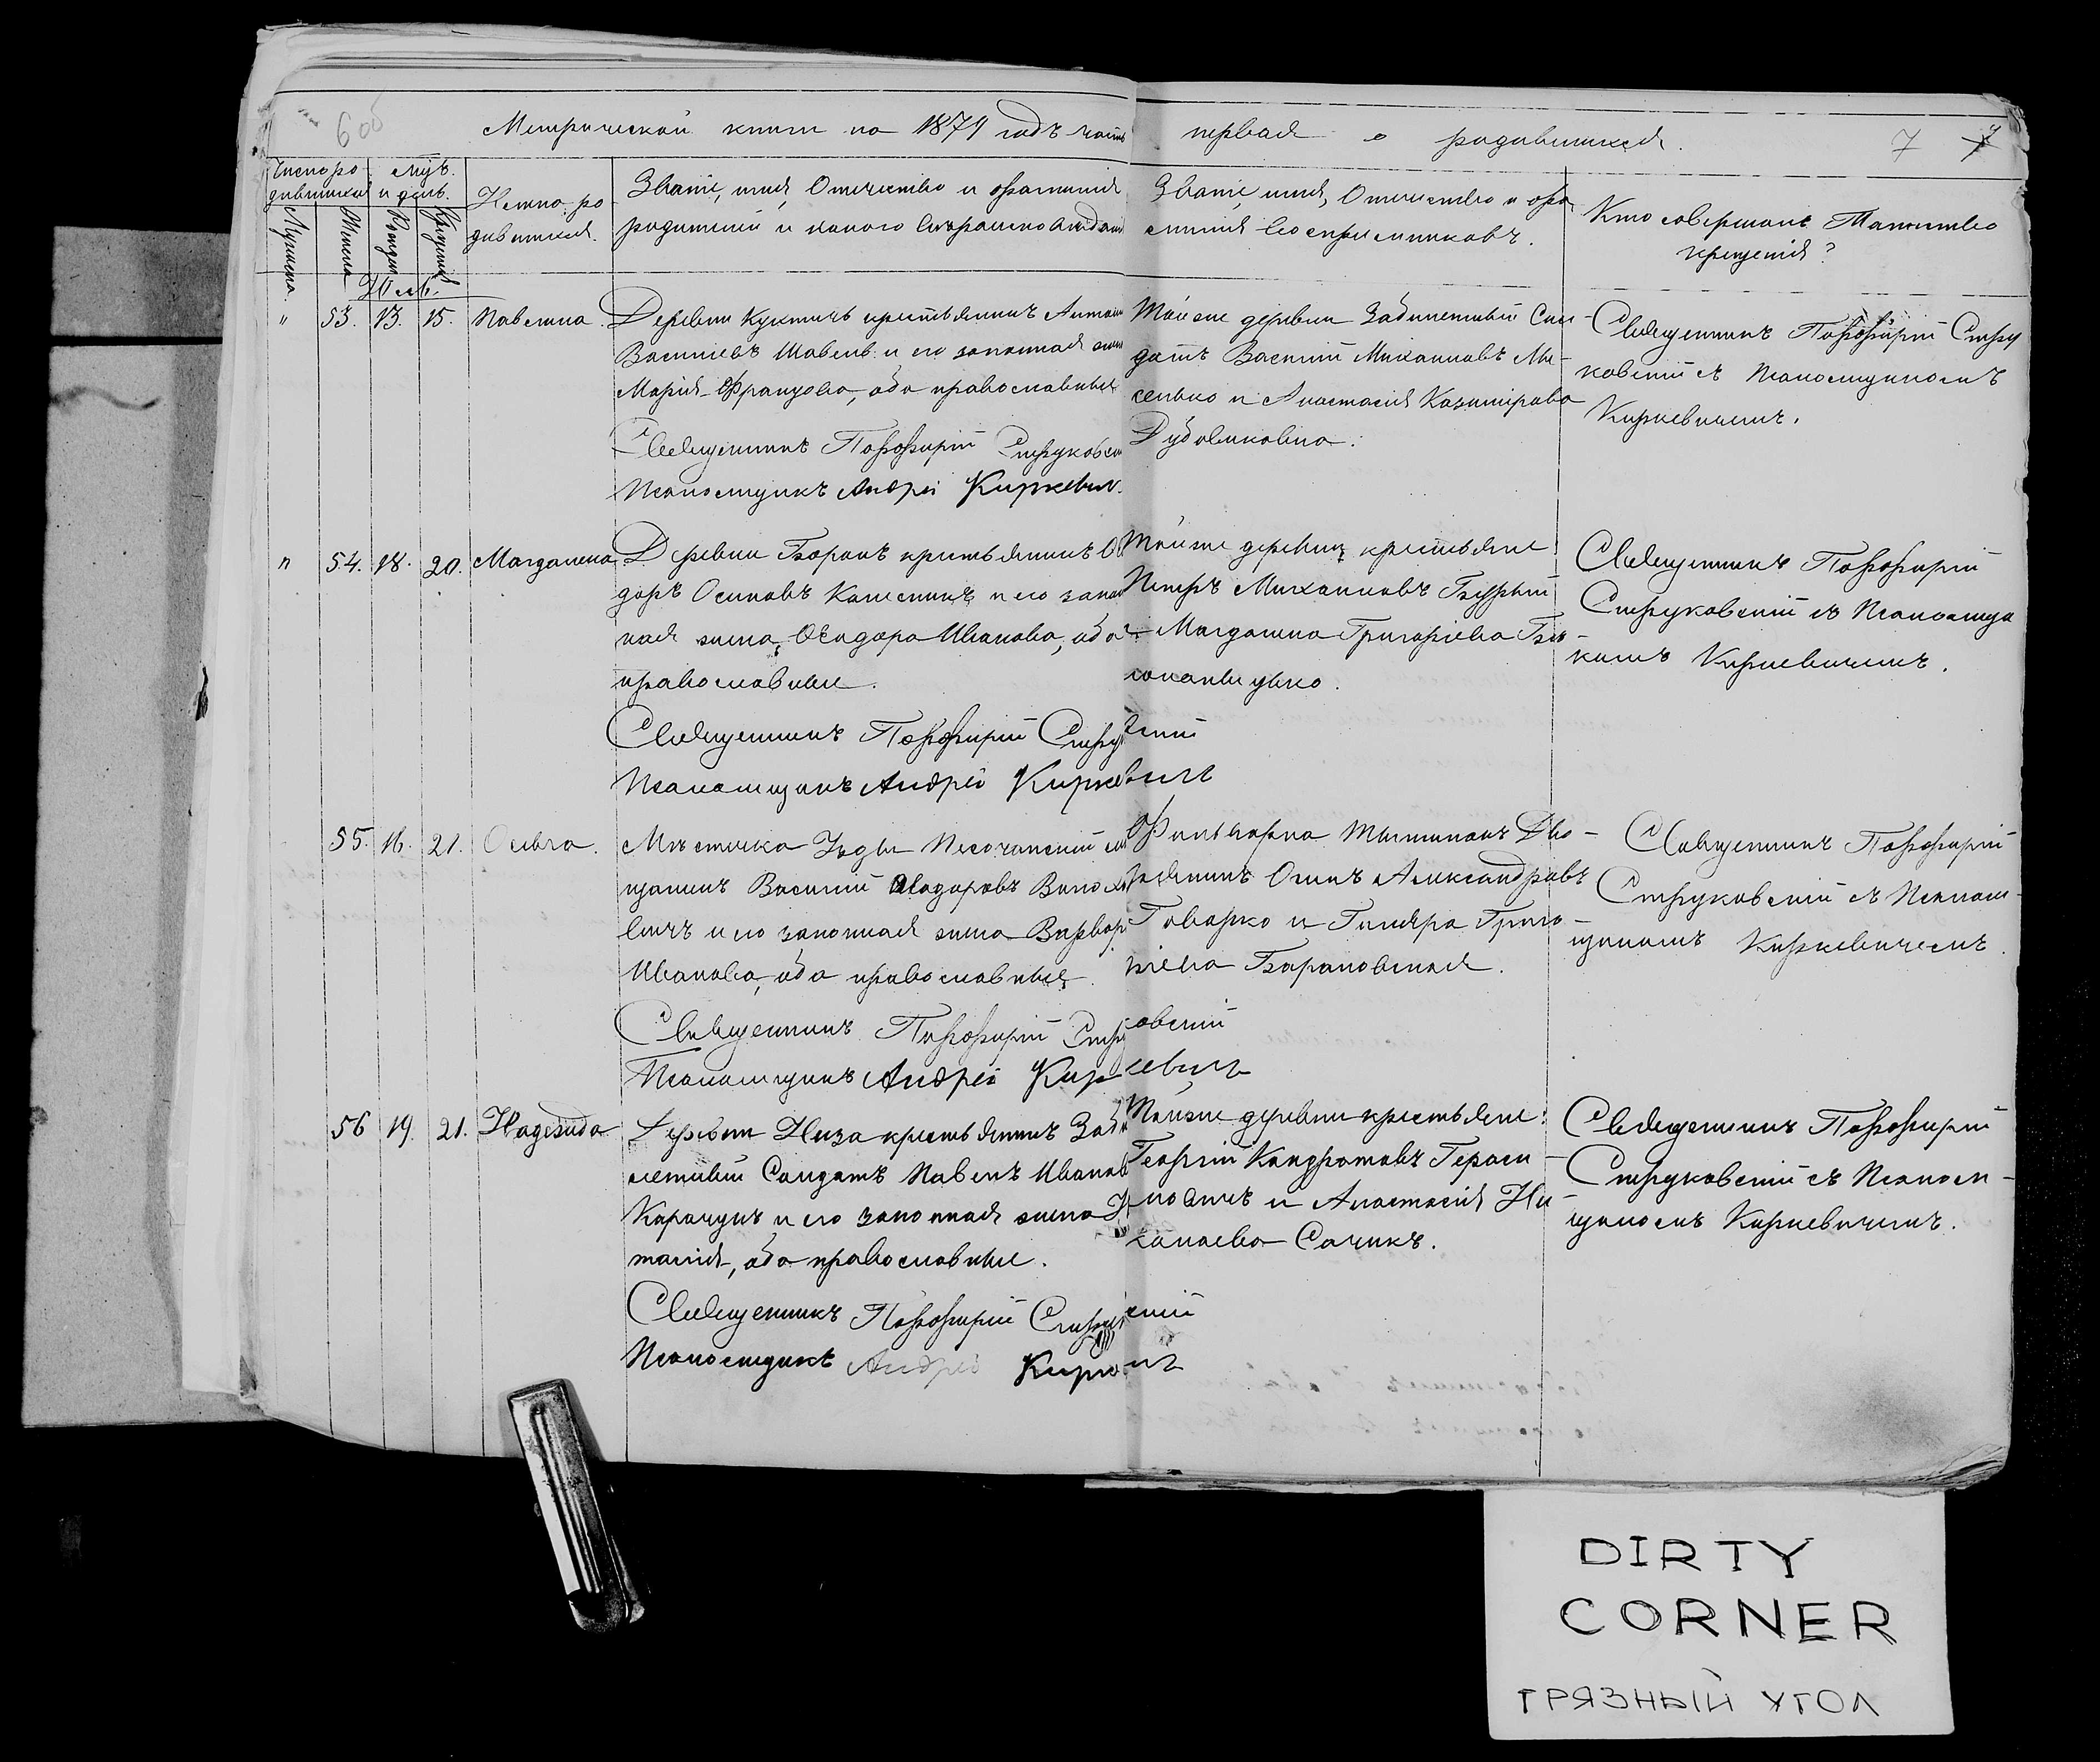 6 об
Метрической книги на 1879 годъ часть
первая о родившихся.
7
Число ро-
дившихся
Мѣс.
и день.
Мужеска
Женска
Рожден.
Крещенія
Имена ро
дившихся.
Званіе, имя, Отчество и фамилія
родителей и какого Вѣроисповѣдан
Званіе, имя, Отчество и фа
милія Воспріемниковъ.
Кто совершалъ Таинство
крещенія?
" 53. 13. 15. Павелина.
Деревни Куктичъ крестьянинъ Антон
Васильевъ Шавель и его законная жен
Марія Францова, оба православные
Священникъ Порфирій Струковск
Псаломщикъ Андрей Киркевич.
Той же деревни Задилетный Сол
датъ Василій Михаиловъ Ми-
сенько и Анастасія Казимірова
Дубовиковна.
Священникъ Порфирій Стру
ковскій съ Псаломщикомъ
Киркевичемъ.
" 54. 18. 20. Магдалена
Деревни Боракъ крестьянинъ
доръ Осиповъ Колесникъ и его закон
ная жена Ѳеодора Иванова, оба
православные.
Священникъ Порфирій Стру
скій
Псаломщикъ Андрей Кирке
вичъ
Той же деревни крестьяне
Петръ Михаиловъ Бурый
и Магдалена Григоріева
Священникъ Порфирій
Струковскій съ Псаломщи
комъ Киркевичемъ.
55. 16. 21. Ольга.
Мѣстечка Узды Песочанскій мѣ
щанинъ Василій Ѳеодоровъ
вичъ и его законная жена Варвар
Иванова, оба православные.
Священникъ Порфирій Стру
ковскій
Псаломщикъ Андрей Кир
кевичъ
Фольварка Дво-
рянинъ Осипъ Александровъ
Говорко и Гликера Григо-
ріева Барановская.
Священникъ Порфирій
Струковскій съ Псалом-
щикомъ Киркевичемъ.
56 19. 21. Надежда
Деревни Низа крестьянинъ Зад
летный Солдатъ Павелъ Иванов
Карачунъ и его законная жена
талія, оба православные.
Священникъ Порфирій Струк
скій
Псаломщикъ Андрей Кирк
ичъ
Той же деревни крестьяне:
Георгій Кондратовъ Гераси-
мовичъ и Анастасія Ни-
колаева Сачикъ.
Священникъ Порфирій
Струковскій съ Псалом-
щикомъ Киркевичемъ.
DIRTY
CORNER
ГРЯЗНЫЙ УГОЛ